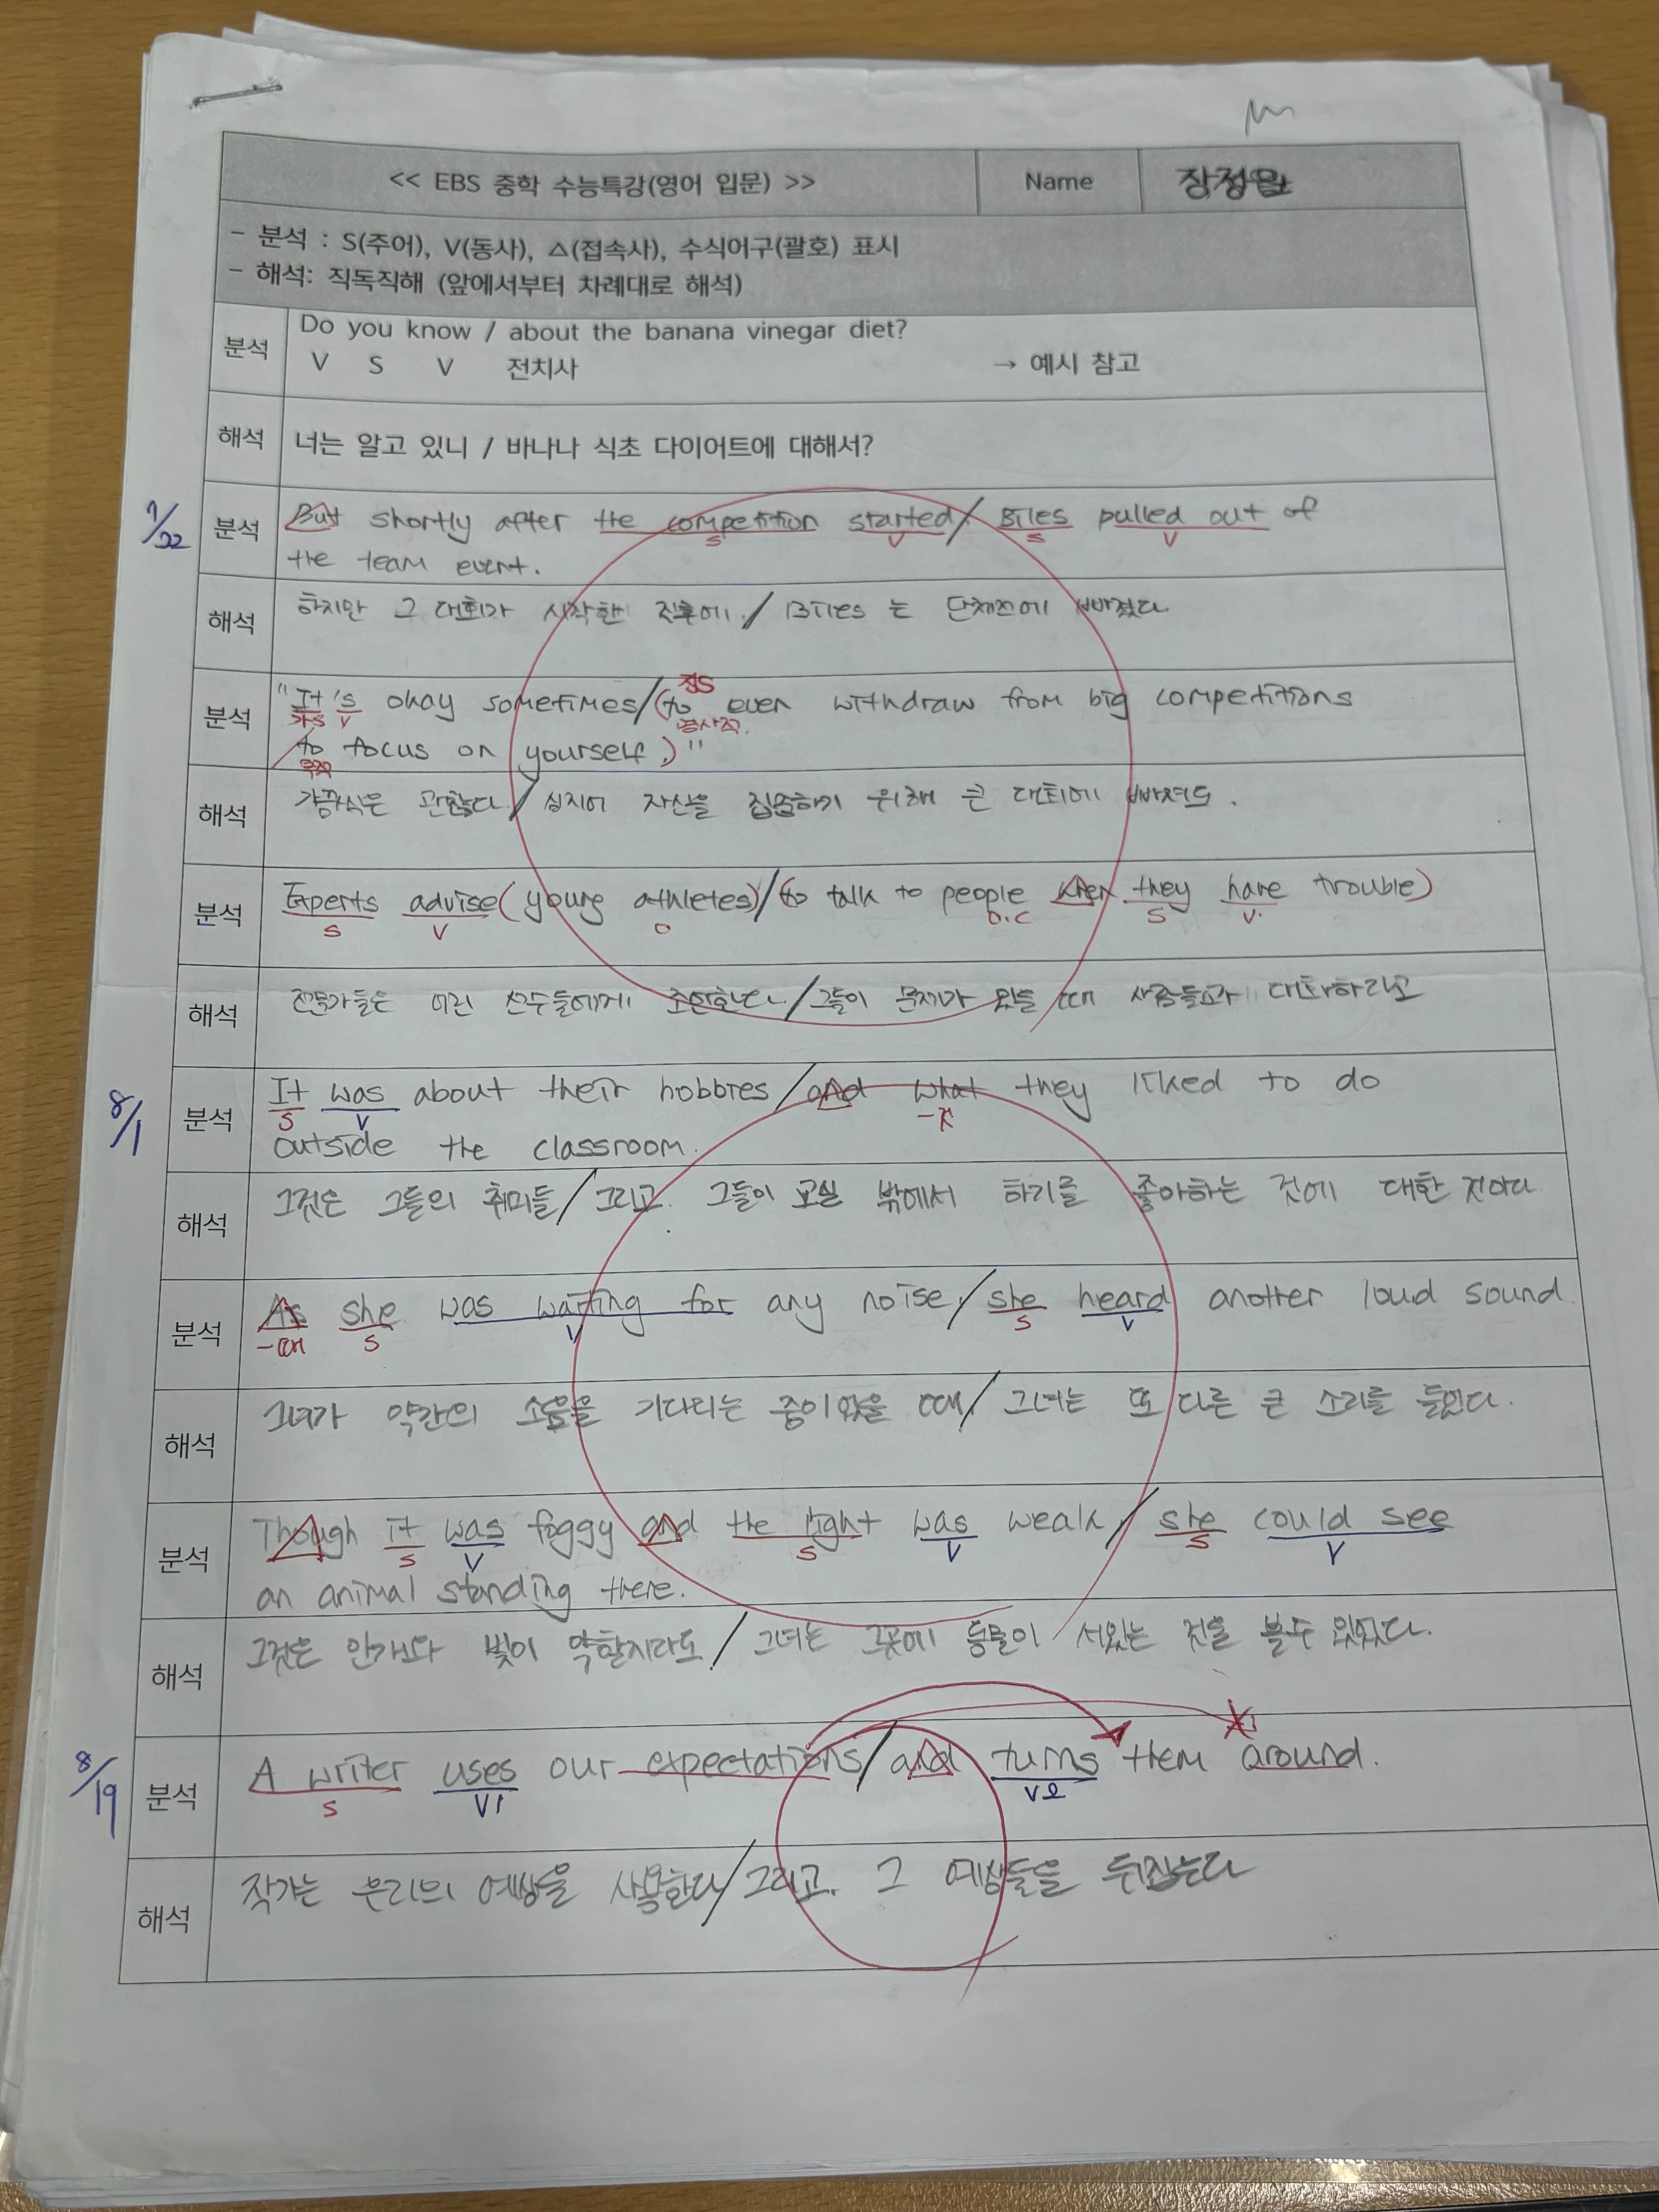 << EBS 중학 수능특강(영어 입문) >> Name
- 분석 : S(주어), V(동사), △(접속사), 수식어구(괄호) 표시
- 해석: 직독직해 (앞에서부터 차례대로 해석)
분석 Do you know / about the banana vinegar diet?
V S V 전치사 → 예시 참고
해석 너는 알고 있니 / 바나나 식초 다이어트에 대해서?
7/22 분석 But shortly after the competition started / Biles pulled out of
S V S V
the team event.
해석 하지만 그 대회가 시작한 직후에 / Biles 는 단체전에 빠졌다
진S
분석 "It's okay sometimes / (to even withdraw from big competitions
가S V 명사적
/ to focus on yourself.)"
목적
해석 가끔식은 괜찮다 / 심지어 자신을 집중하기 위해 큰 대회에 빠져도.
분석 Experts advise (young athletes) / (to talk to people when they have trouble)
S V O O.C S V
해석 전문가들은 어린 선수들에게 조언한다 / 그들이 문제가 있을 때 사람들과 대화하라고
8/1 분석 It was about their hobbies / and what they liked to do
S V
outside the classroom.
해석 그것은 그들의 취미들 / 그리고 그들이 교실 밖에서 하기를 좋아하는 것에 대한
분석 As she was waiting for any noise, / she heard another loud sound.
-때 S V S V
해석 그녀가 약간의 소음을 기다리는 중이었을 때 / 그녀는 또 다른 큰 소리를 들었다.
분석 Though it was foggy and the light was weak, / she could see
S V S V S V
an animal standing there.
해석 그것은 안개와 빛이 약할지라도 / 그녀는 그곳에 동물이 서있는 것을 볼수 있었다.
8/19 분석 A writer uses our expectations / and turns them around.
S V1 V2
해석 작가는 우리의 예상을 사용한다 / 그리고 그 예상들을 뒤집는다